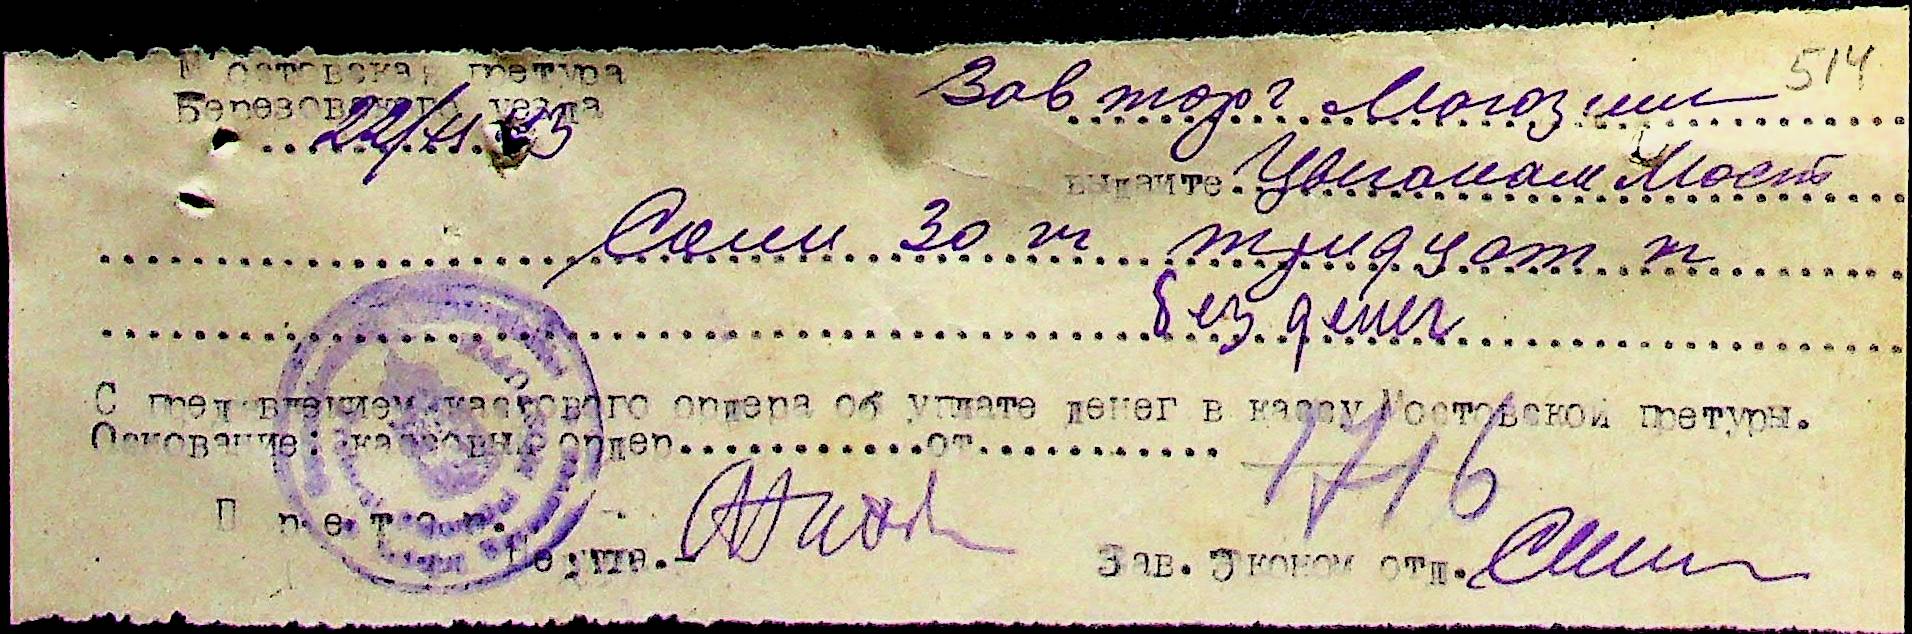 Мостовская претура
Березовского уезда
22/XI 43
514
Зав торг Могозином
выдайте Цыганам Мост
Соли 30 кг тридцат к
без денег
С пред влением кассового ордера об уплате денег в кассу Мостовской претуры.
Основание: кассовый ордер............от............
1716
П р е т о р.
Зав. Эконом отд.